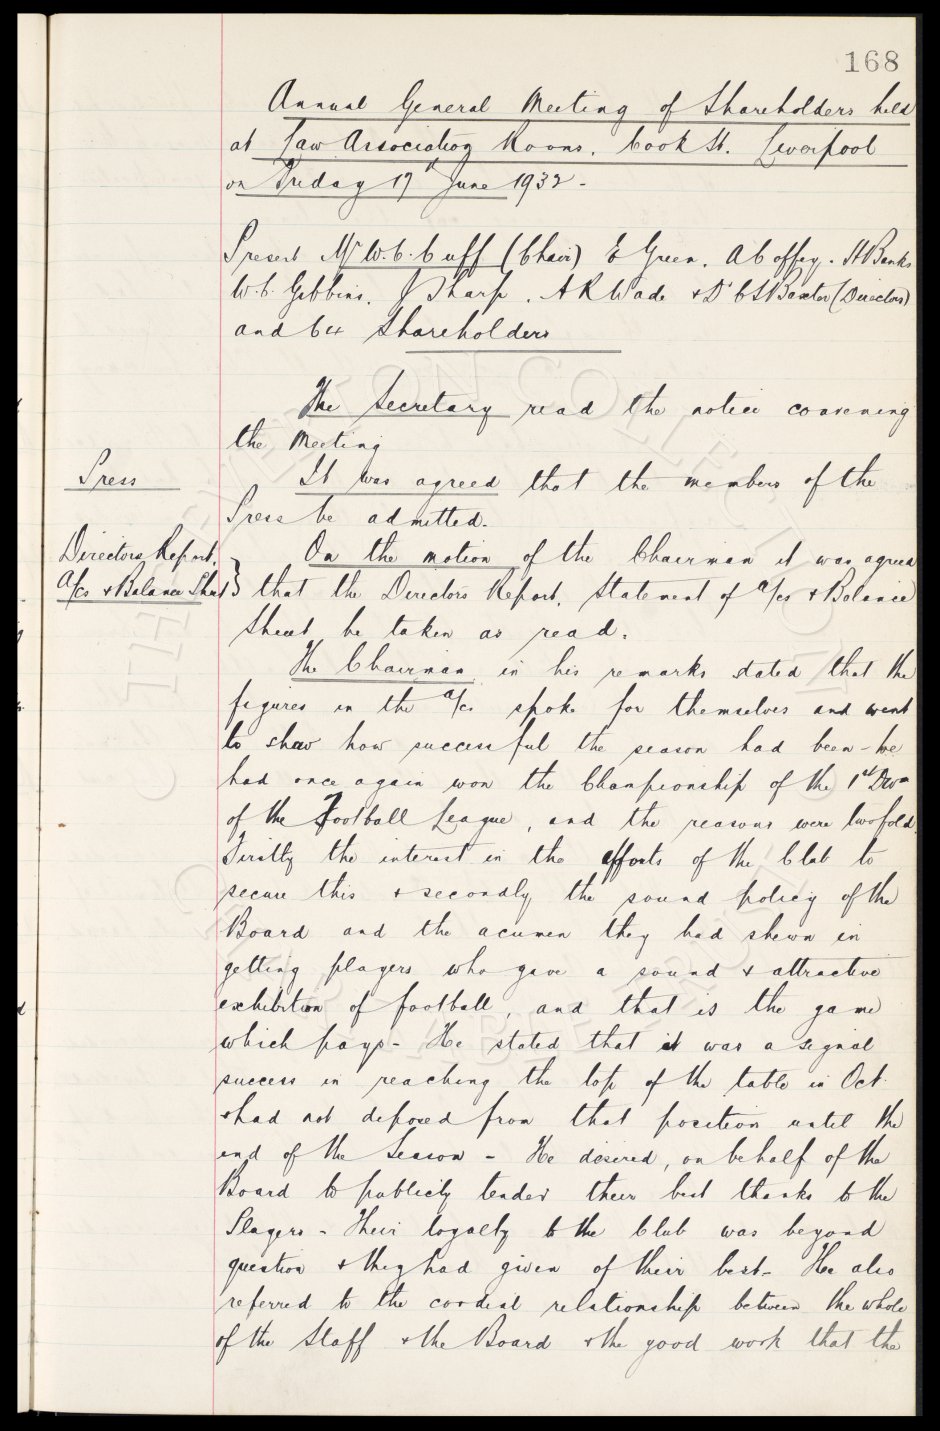 168
Annual General Meeting of Shareholders held
at Law Association Rooms. Cook St. Liverpool
on Friday 17th June 1932 -
Present Mr W. C. Cuff (Chair) E Green. A Coffey. H Banks
W. C. Gibbins. J Sharp. A R Wade & Dr C S Baxter (Directors)
and 64 Shareholders
The Secretary read the notice convening
the Meeting
Press
It was agreed that the members of the
Press be admitted.
Directors Report,
a/cs & Balance Sheet }
On the motion of the Chairman it was agreed
that the Directors Report, Statement of a/cs & Balance
Sheet be taken as read.
The Chairman in his remarks stated that the
figures in the a/cs spoke for themselves and went
to shew how successful the season had been - we
had once again won the Championship of the 1st Divn
of the Football League, and the reasons were twofold.
Firstly the interest in the efforts of the Club to
secure this & secondly the sound policy of the
Board and the acumen they had shewn in
getting players who gave a sound & attractive
exhibition of football, and that is the game
which pays - He stated that it was a signal
success in reaching the top of the table in Oct.
& had not deposed from that position until the
end of the Season - He desired, on behalf of the
Board to publicly tender their best thanks to the
Players - Their loyalty to the Club was beyond
question & they had given of their best - He also
referred to the cordial relationship between the whole
of the Staff & the Board & the good work that the
THE EVERTON COLLECTION